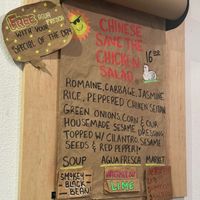 FREE SOUP
WITH YOUR FUSION
SPECIAL OF THE DAY
CHINESE
SAVE THE
CHICKEN
SALAD
16
ROMAINE, CABBAGE, JASMINE
RICE, PEPPERED CHICKEN SEITAN
GREEN ONIONS, CORN & OUR
HOUSEMADE SESAME DRESSING
TOPPED W/ CILANTRO SESAME
SEEDS & RED PEPPER
SOUP
AGUA FRESCA
MARKET
SMOKEY
BLACK
BEAN!
LIME